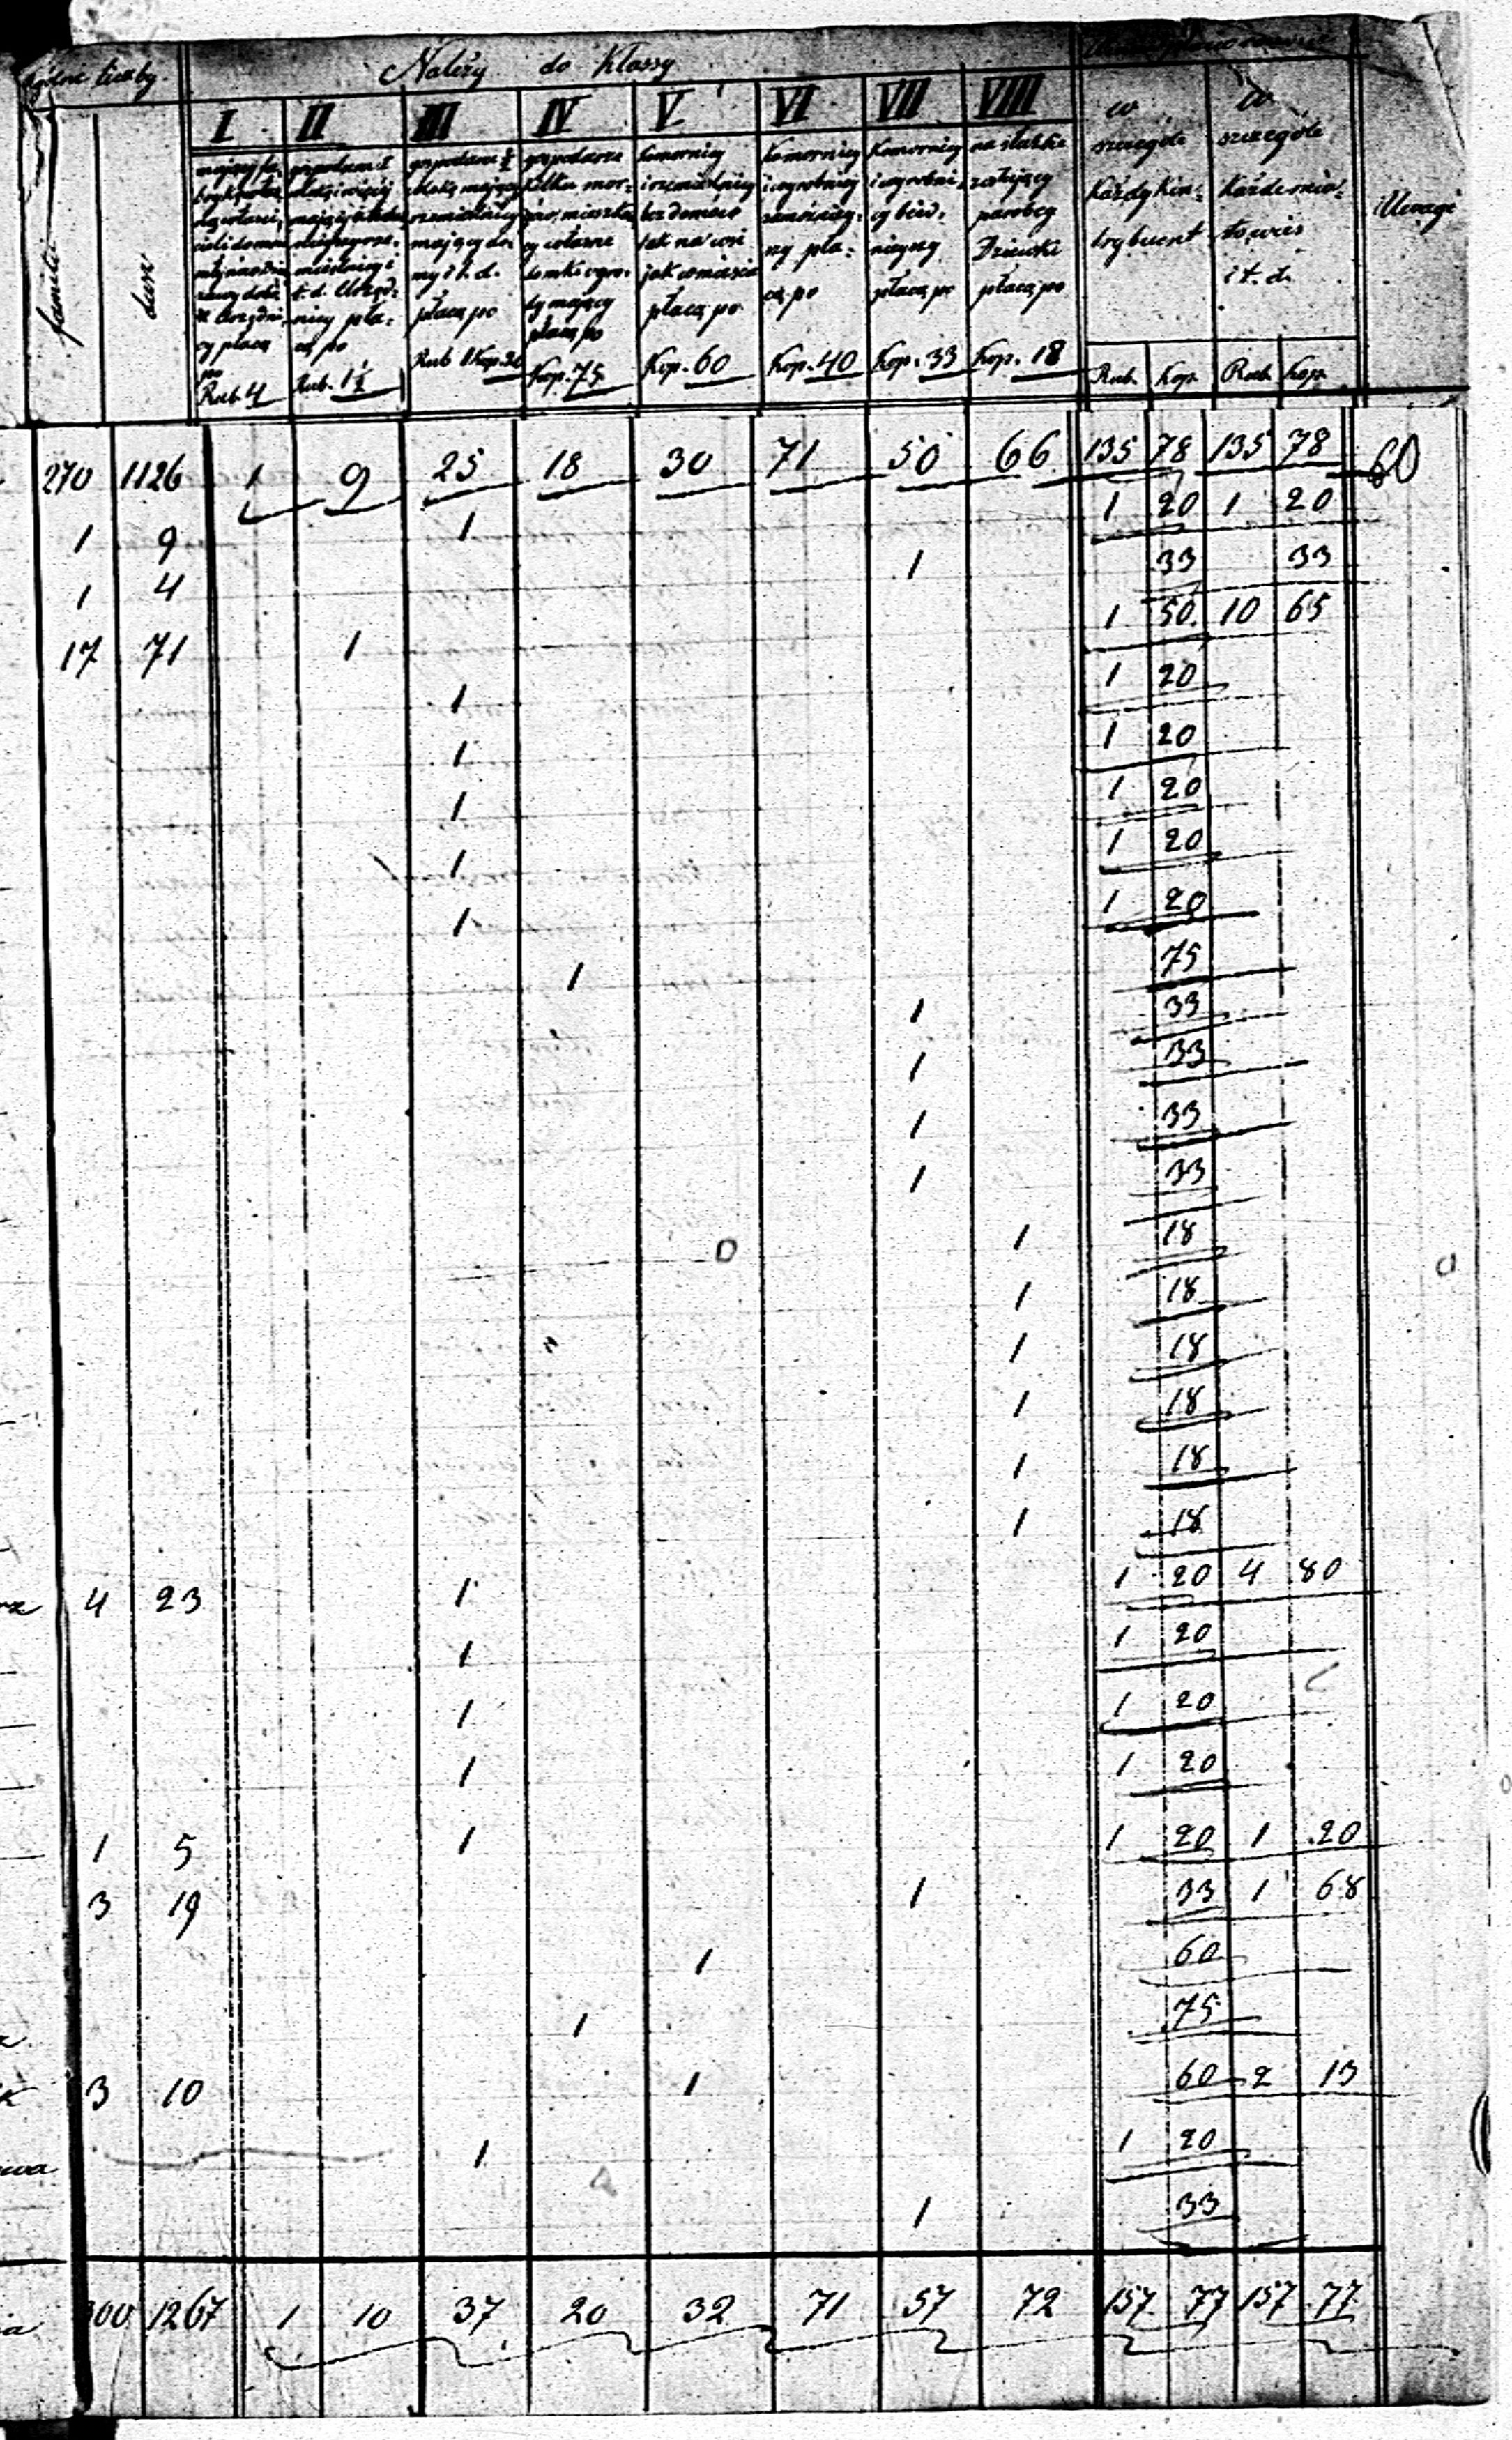 liczby.
Należy do Klassy
familii
dusz
I II III IV V VI VII VIII
w szczególe każdy kontrybuent
w szczególe każde miasto, wieś i t. d.
Uwagi
mający
gospodarze
gospodarze ½
gospodarze
Komornicy
Komornicy
Komornicy
na służbie
kilka mor-
i rzemieślnicy
i wyrobnicy
i wyrobni-
zostający
rzemieślnicy
gów, mieszka
bez domów
zamożniej-
cy bied-
parobcy
mający do-
cy własne
tak na wsi
szy pła-
niejszy
Dziewki
my i t. d.
domki ogro-
jak w mieście
cą po
płacą po
płacą po
płacą po
dy mający
płacą po
cy płacą
nicy pła-
płacą po
po
cą po
Rub. 4 Rub. 1½ Rub 1 Kop. 20 Kop. 75 Kop. 60 Kop. 40 Kop. 33 Kop. 18 Rub. Kop. Rub. Kop.
270 1126 1 9 25 18 30 71 50 66 135 78 135 78
1 9 1 1 20 1 20
1 4 1 33 33
17 71 1 1 50 10 65
1 1 20
1 1 20
1 1 20
1 1 20
1 1 20
1 75
1 33
1 33
1 33
1 33
1 18
1 18
1 18
1 18
1 18
1 18
4 23 1 1 20 4 80
1 1 20
1 1 20
1 1 20
1 5 1 1 20 1 20
3 19 1 33 1 68
1 60
1 75
3 10 1 60 2 13
1 1 20
1 33
300 1267 1 10 37 20 32 71 57 72 157 77 157 77